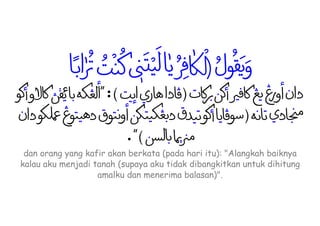 وَيَقُولُ ٱلْكَافِرُ يَٰلَيْتَنِى كُنتُ تُرَٰبًۢا
دان أورڠ يڠ كافير أكن بركات (ڤادا هاري إيت): "ألڠكه بائيقڽ كالاو أكو
منجادي تانه (سوڤايا أكو تيدق دبڠكيتكن أونتوق دهيتوڠ عملكو دان
منريما بالسن)".
dan orang yang kafir akan berkata (pada hari itu): "Alangkah baiknya
kalau aku menjadi tanah (supaya aku tidak dibangkitkan untuk dihitung
amalku dan menerima balasan)".